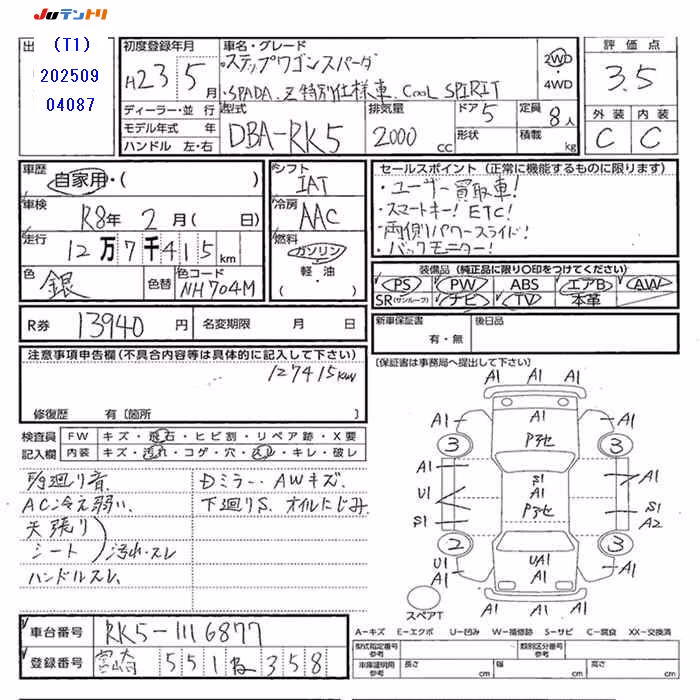 Juテントリ
出 (T1)
202509
04087
初度登録年月
H23 5月
車名・グレード
ステップワゴンスパーダ
・SPADA Z 特別仕様車 Cool SPIRIT
2WD
・4WD
評価点
3.5
外装 内装
C C
ディーラー・並行
モデル年式 年
ハンドル 左・右
型式
DBA-RK5
排気量
2000 cc
ドア 5
形状
定員 8人
積載 kg
車歴
自家用・( )
車検
R8年 2月( 日)
走行
12万7千415km
色 銀 色替 色コード NH704M
シフト
IAT
冷房
AAC
燃料
ガソリン
軽・油
セールスポイント (正常に機能するものに限ります)
・ユーザー買取車!
・スマートキー! ETC!
・両側パワースライド!
・バックモニター!
装備品 (純正品に限り○印をつけてください)
PS PW ABS エアB AW
SR(サンルーフ) ナビ TV 本革
R券 13940円 名変期限 月 日
新車保証書 有・無 後日品
注意事項申告欄 (不具合内容等は具体的に記入して下さい)
127415km
修復歴 有〔箇所
〔保証書は事務局へ提出して下さい〕
検査員 FW キズ・飛石・ヒビ割・リペア跡・X要
記入欄 内装 キズ・汚れ・コゲ・穴・スレ・キレ・破レ
廻り音
AC冷え弱い
天張り
シート 汚れ・スレ
ハンドルスレ
Dミラー・AWキズ
下廻りS オイルにじみ
A1 A1
A1
A1 A1
3 Pアセ 3
A1 S1 A1
U1 A1
Pアセ S1
S1 A2
2 3
U1 UA1 A1
A1 A1
スペアT
A1 A1
車台番号 RK5-1116877
登録番号 宮崎 551 358
A−キズ E−エクボ U−凹み W−補修跡 S−サビ C−腐食 XX−交換済
型式指定番号 参考 類別区分番号 参考
車庫証明用 参考 長さ cm 幅 cm 高さ cm